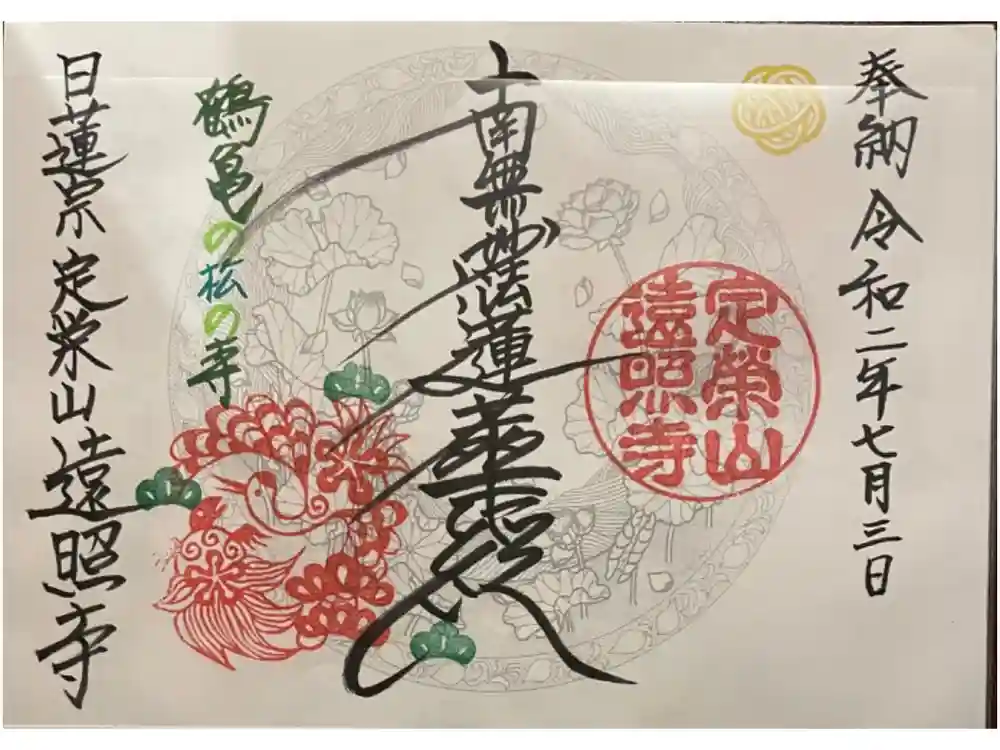 奉納 令和二年七月三日
定榮山
遠照寺
南無妙法蓮華経
鶴亀の松の寺
日蓮宗 定栄山 遠照寺